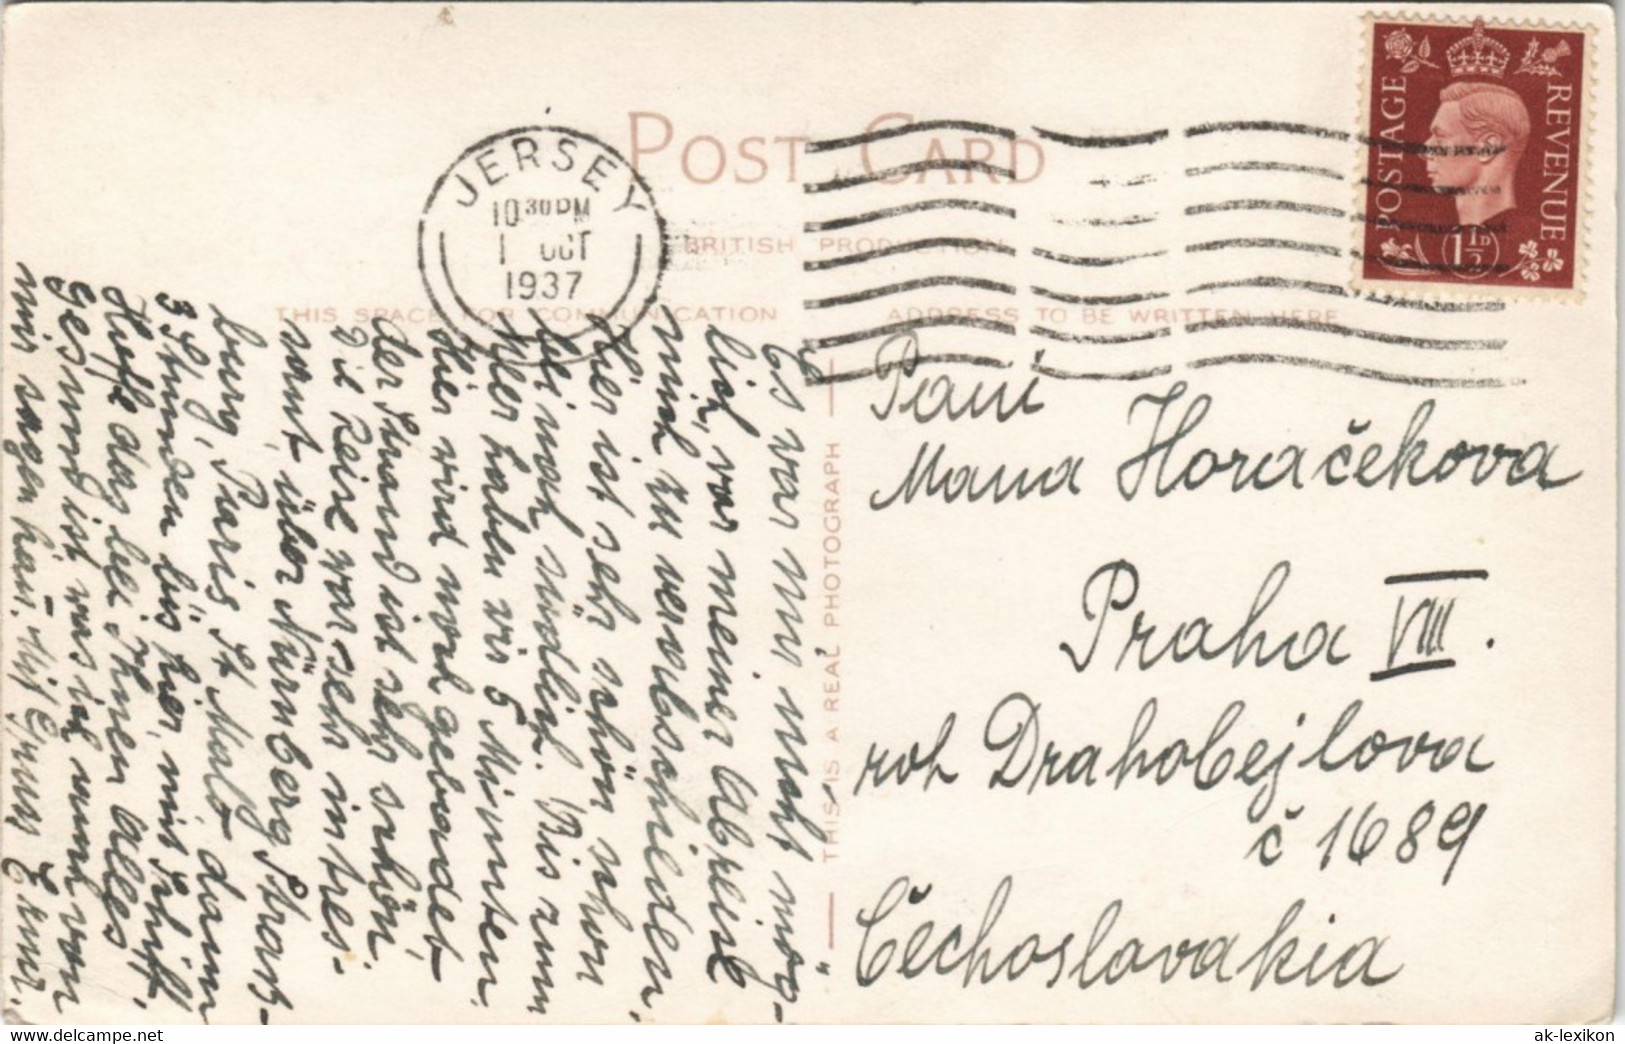 POST CARD
BRITISH PRODUCTION
THIS SPACE FOR COMMUNICATION
ADDRESS TO BE WRITTEN HERE
THIS IS A REAL PHOTOGRAPH
JERSEY
10 30 PM
1 OCT
1937
POSTAGE
REVENUE
1½D
Paní
Mana Horačekova
Praha VIII.
roh Drahobejlova
č 1689
Čechoslovakia
Es war mir nicht mög-
lich, vor meiner Abreise
mich zu verabschieden.
Hier ist sehr schön schon
bei noch südlich. Bis zum
Meer haben wir 5 Minuten.
Hier wird noch gebadet
der Strand ist sehr schön.
Die Reise war sehr intres-
sant, über Nürnberg, Strass-
burg, Paris, St Malo dann
3 Stunden bis hier, mit Schiff.
Hoffe das bei Ihnen alles
Gesund ist, was ich auch von
mir sagen kan. Mit Gruss
www.delcampe.net
ak-lexikon